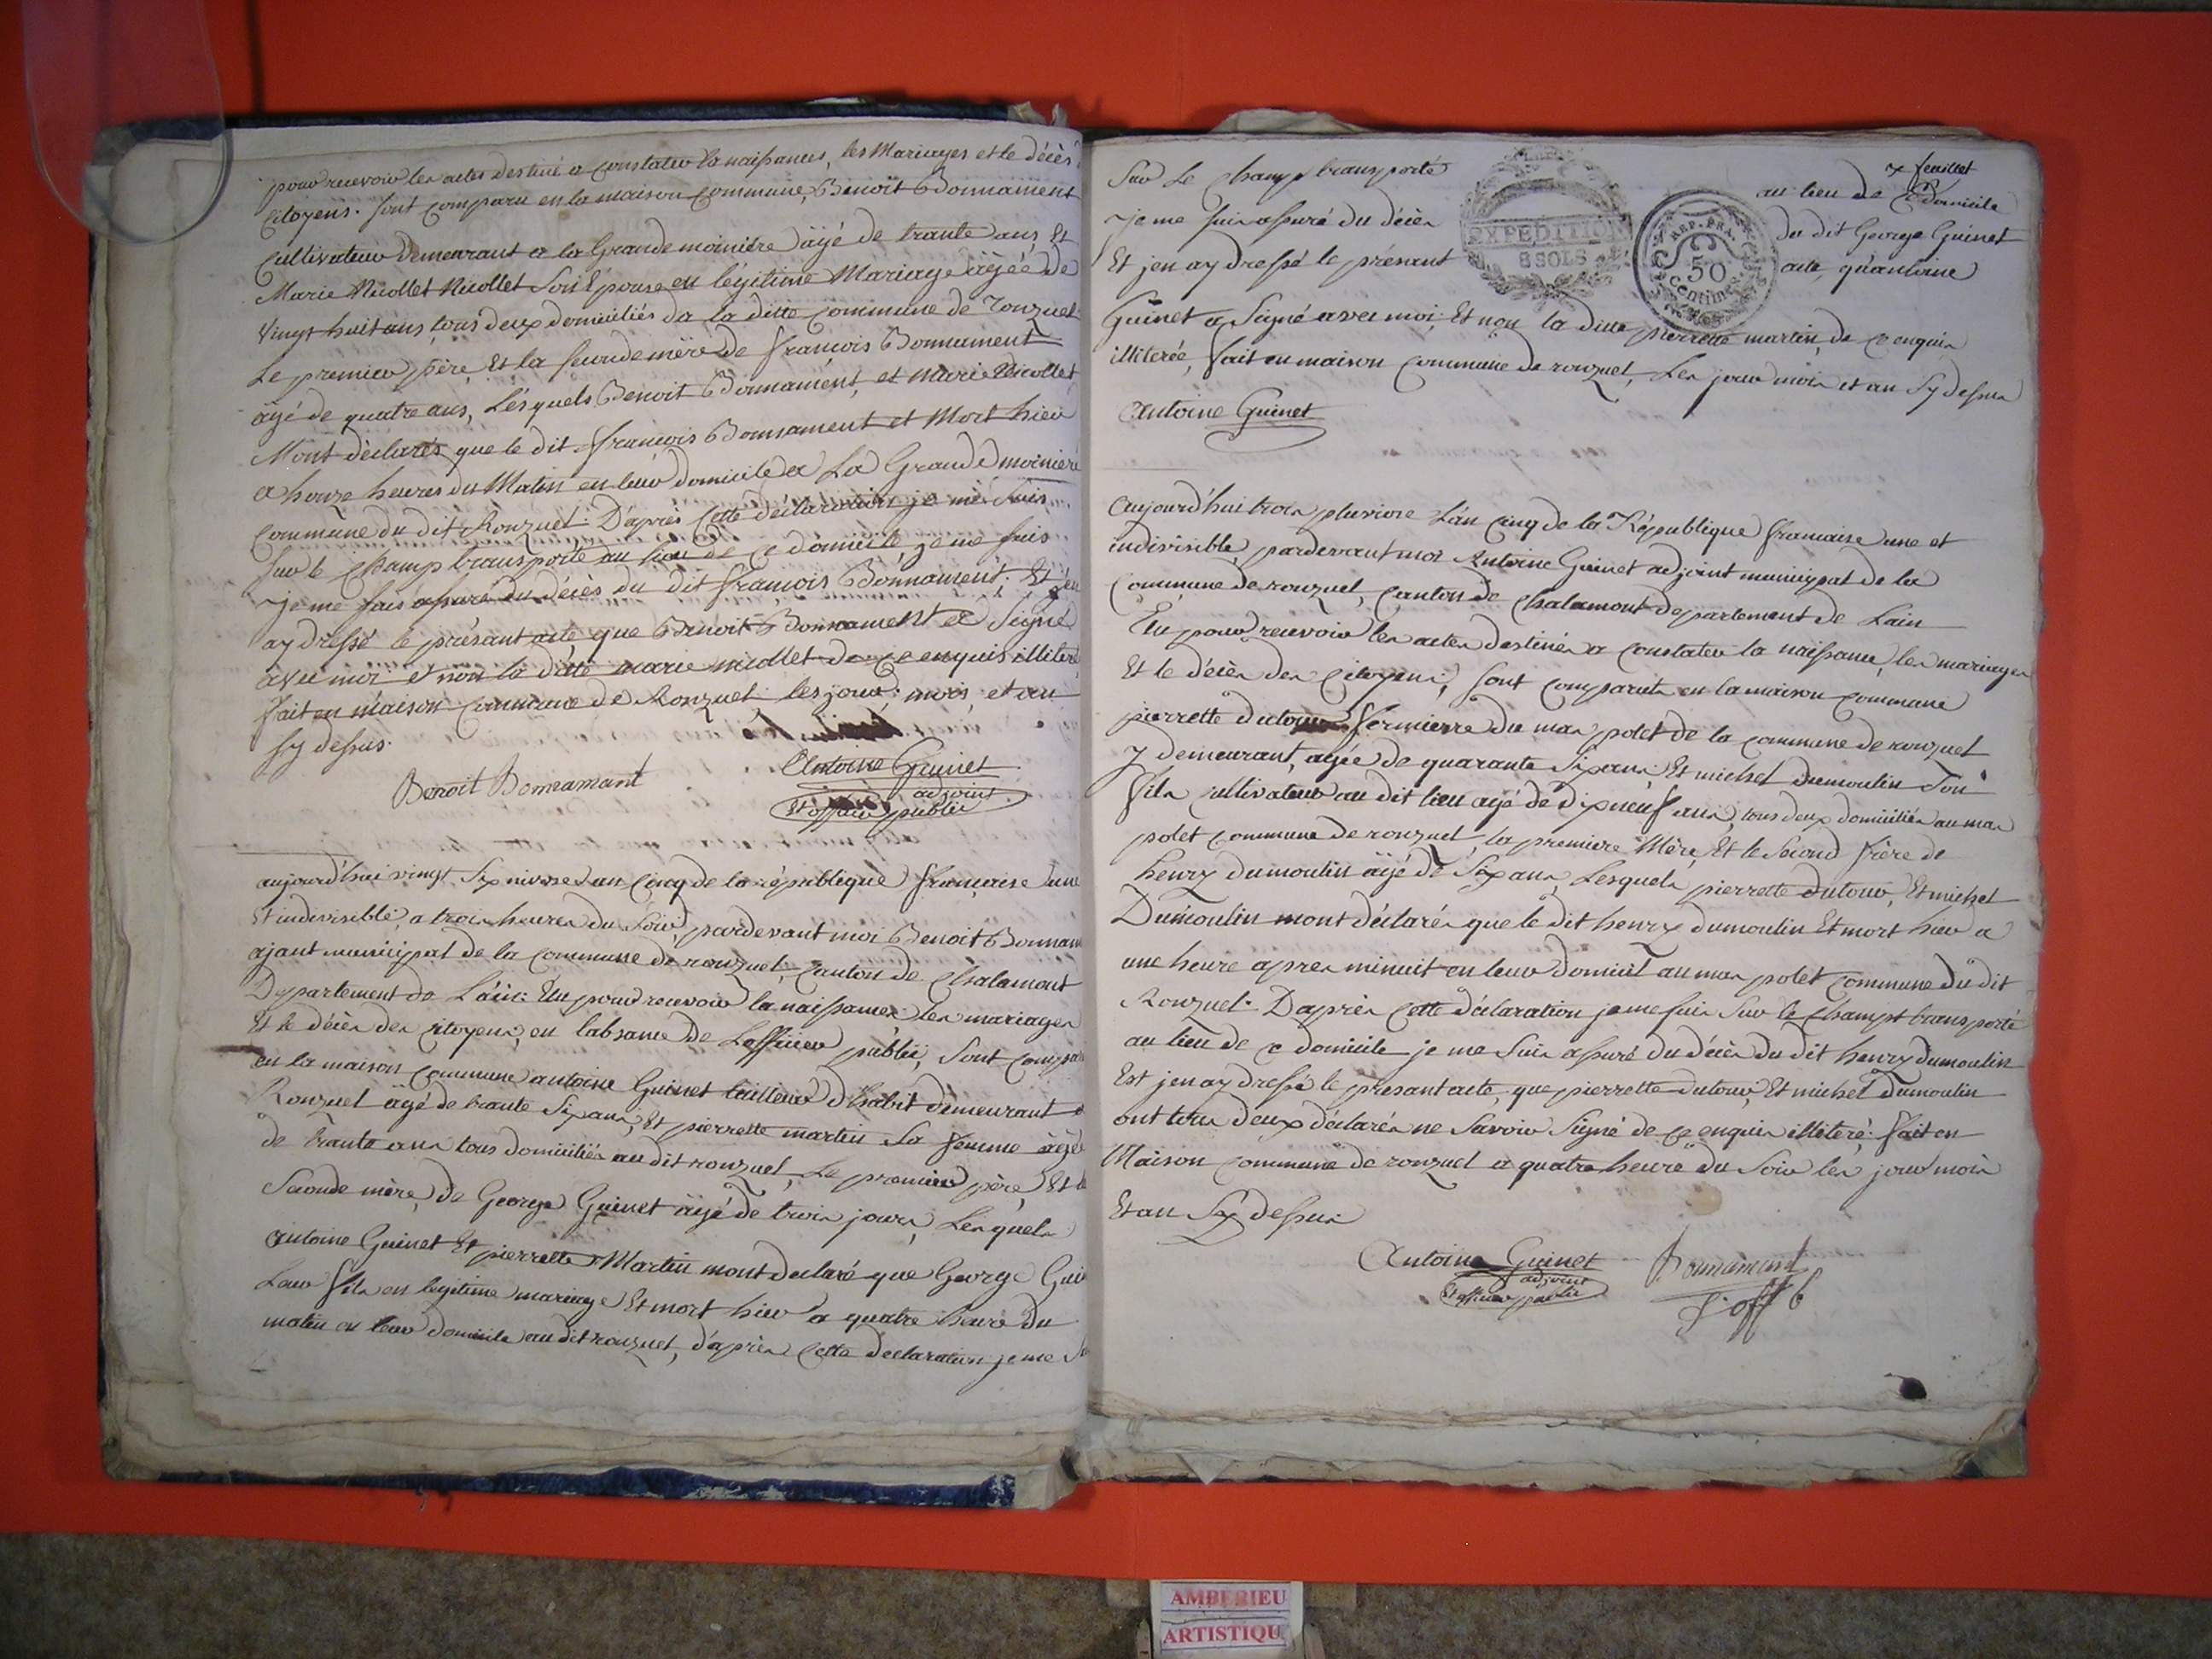 pour recevoir les actes destiné a constater la naissances, les Mariages et le décès
Citoyens. Sont comparu en la maison commune, Benoit Bonnament
Cultivateur Demeurant a la Grande moinière âgé de trante ans, Et
Marie Nicollet Nicollet Son Épouse en légitime Mariage âgée de
Vingt huit ans, tous deux domiciliés da la ditte commune de ronzuel
Le premier père, Et la seconde mère de françois Bonnament
âgé de quatre ans, Lesquels Benoit Bonnament, et Marie Nicollet
Mont déclarés que le dit françois Bonnament et Mort hier
a honze heures du Matin en leur domicile a La Grande moinière
commune du dit Ronzuel. D'après Cette déclaration je me suis
Sur le Champ transporté au lieu de ce domicile, je me suis
je me suis assuré du décès du dit françois Bonnament. Et j'en
ay dressé le présant acte que Benoit Bonnament a Signé
avec moi et non la ditte marie nicollet de ce enquis illiteré
fait en maison commune de Ronzuel les jour, mois, et an
sy dessus.
Benoit Bonnamant
Antoine Guinet
adjoint
Et officier public
aujourd'hui vingt Six nivose Lan Cinq de la république française une
Et indivisible, a trois heures du Soir, pardevant moi Benoit Bonnam
ajant municipal de la commune de ronzuel, canton de Chalamont
Departement de L'ain. Elu pour recevoir la naissances les mariages
Et le décès des citoyens, en labsance de Lofficier public, Sont compa
en la maison commune antoine Guinet tailleur d'habit demeurant a
Ronzuel âgé de trante Six ans, Et pierrette martin Sa femme âgé
de trante ans tous domiciliés au dit ronzuel, Le premier père, Et la
Seconde mère, de George Guinet âgé de trois jours, Lesquels
antoine Guinet Et pierrette Martin mont declaré que George Gui
Leur fils en legitime mariage Et mort hier a quatre heure du
matin en leur domicile au dit ronzuel, d'après Cette declaration je me Su
7 feuillet
Sur Le Champ transporté au lieu de Ce Domicile
je me suis assuré du décès du dit George Guinet
Et jen ay dressé le présant acte, qu'antoine
EXPEDITION
8 SOLS
REP. FRA.
50
Centime
Guinet a Signé avec moi, Et non la ditte pierrette martin, de ce enquis
illiterée, fait en maison commune de ronzuel, Les jour mois et an Sy dessus
Antoine Guinet
aujourd'hui trois pluviose Lan cinq de la République francaise une et
indivisible, pardevant moi Antoine Guinet adjoint municipal de la
Commune de ronzuel, canton de Chalamont departement de Lain
Elu pour recevoir les actes destinés a constater la naissance, les mariages
Et le décès des Citoyens, Sont comparuts en la maison commune
pierrette dutour fermierre du mas polet de la commune de ronzuel
y demeurant, agée de quarante Six ans. Et michel dumoulin Son
fils cultivateur au dit lieu agé de dix neuf ans, tous deux domiciliés au mas
polet commune de ronzuel, la premiere Mère, Et le Second frère de
henry dumoulin âgé de Six ans, Lesquels pierrette dutour, Et michel
Dumoulin mont déclarés que le dit henry dumoulin Et mort hier a
une heure apres minuit en leur domicil au mas polet commune du dit
Ronzuel. D'après Cette déclaration je me suis Sur le Champt transporté
au lieu de ce domicile je me Suis assuré du décès du dit henry dumoulin
Est jen ay dressé le presant acte, que pierrette dutour, Et michel Dumoulin
ont tous deux déclarés ne Savoir Signé de ce enquis illiteré. fait en
Maison commune de ronzuel a quatre heure du Soir les jour mois
Et an Sy dessus
Antoine Guinet
adjoint
Et officier public
Bonnamant
AMBERIEU
ARTISTIQU